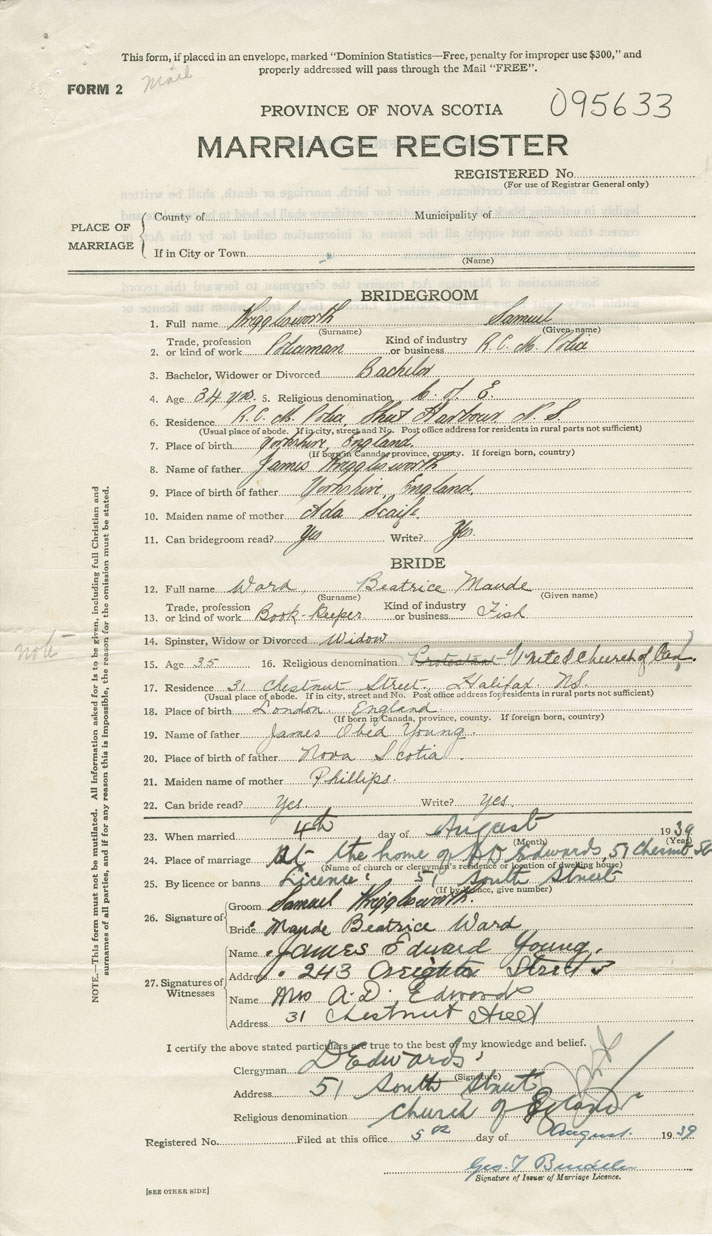 This form, if placed in an envelope, marked "Dominion Statistics—Free, penalty for improper use $300," and
properly addressed will pass through the Mail "FREE".
FORM 2
PROVINCE OF NOVA SCOTIA
095633
MARRIAGE REGISTER
REGISTERED No.
(For use of Registrar General only)
PLACE OF MARRIAGE
County of Municipality of
If in City or Town
(Name)
BRIDEGROOM
1. Full name Wrigglesworth Samuel
(Surname) (Given name)
2. Trade, profession or kind of work Policeman Kind of industry or business R.C.M. Police
3. Bachelor, Widower or Divorced Bachelor
4. Age 34 yrs. 5. Religious denomination C. of E.
6. Residence R.C.M. Police, Sheet Harbour N.S.
(Usual place of abode. If in city, street and No. Post office address for residents in rural parts not sufficient)
7. Place of birth Yorkshire, England.
(If born in Canada, province, county. If foreign born, country)
8. Name of father James Wrigglesworth
9. Place of birth of father Yorkshire, England.
10. Maiden name of mother Ada Scaife
11. Can bridegroom read? Yes Write? Yes.
BRIDE
12. Full name Ward, Beatrice Maude
(Surname) (Given name)
13. Trade, profession or kind of work Book-Keeper Kind of industry or business Fish
14. Spinster, Widow or Divorced Widow
note
15. Age 35 16. Religious denomination Protestant United Church of Can.
17. Residence 31 Chestnut Street, Halifax NS.
(Usual place of abode. If in city, street and No. Post office address for residents in rural parts not sufficient)
18. Place of birth London England
(If born in Canada, province, county. If foreign born, country)
19. Name of father James Obed Young.
20. Place of birth of father Nova Scotia.
21. Maiden name of mother Phillips.
22. Can bride read? Yes Write? Yes.
23. When married 4th day of August 1939
(Month) (Year)
24. Place of marriage At the home of Edwards, 51
(Name of church or clergyman's residence or location of dwelling house)
25. By licence or banns Licence 51 South Street
(If by licence, give number)
26. Signature of
Groom Samuel Wrigglesworth.
Bride Maude Beatrice Ward
27. Signatures of Witnesses
Name James Edward Young.
Address 243 Creighton Street
Name Mrs A. D. Edwards
Address 31 Chestnut Street
I certify the above stated particulars are true to the best of my knowledge and belief.
Clergyman Edwards
(Signature)
Address 51 South Street
Religious denomination Church of England
Registered No. Filed at this office 5th day of August 1939
Signature of Issuer of Marriage Licence.
[SEE OTHER SIDE]
NOTE.—This form must not be mutilated. All information asked for is to be given, including full Christian and
surnames of all parties, and if for any reason this is impossible, the reason for the omission must be stated.